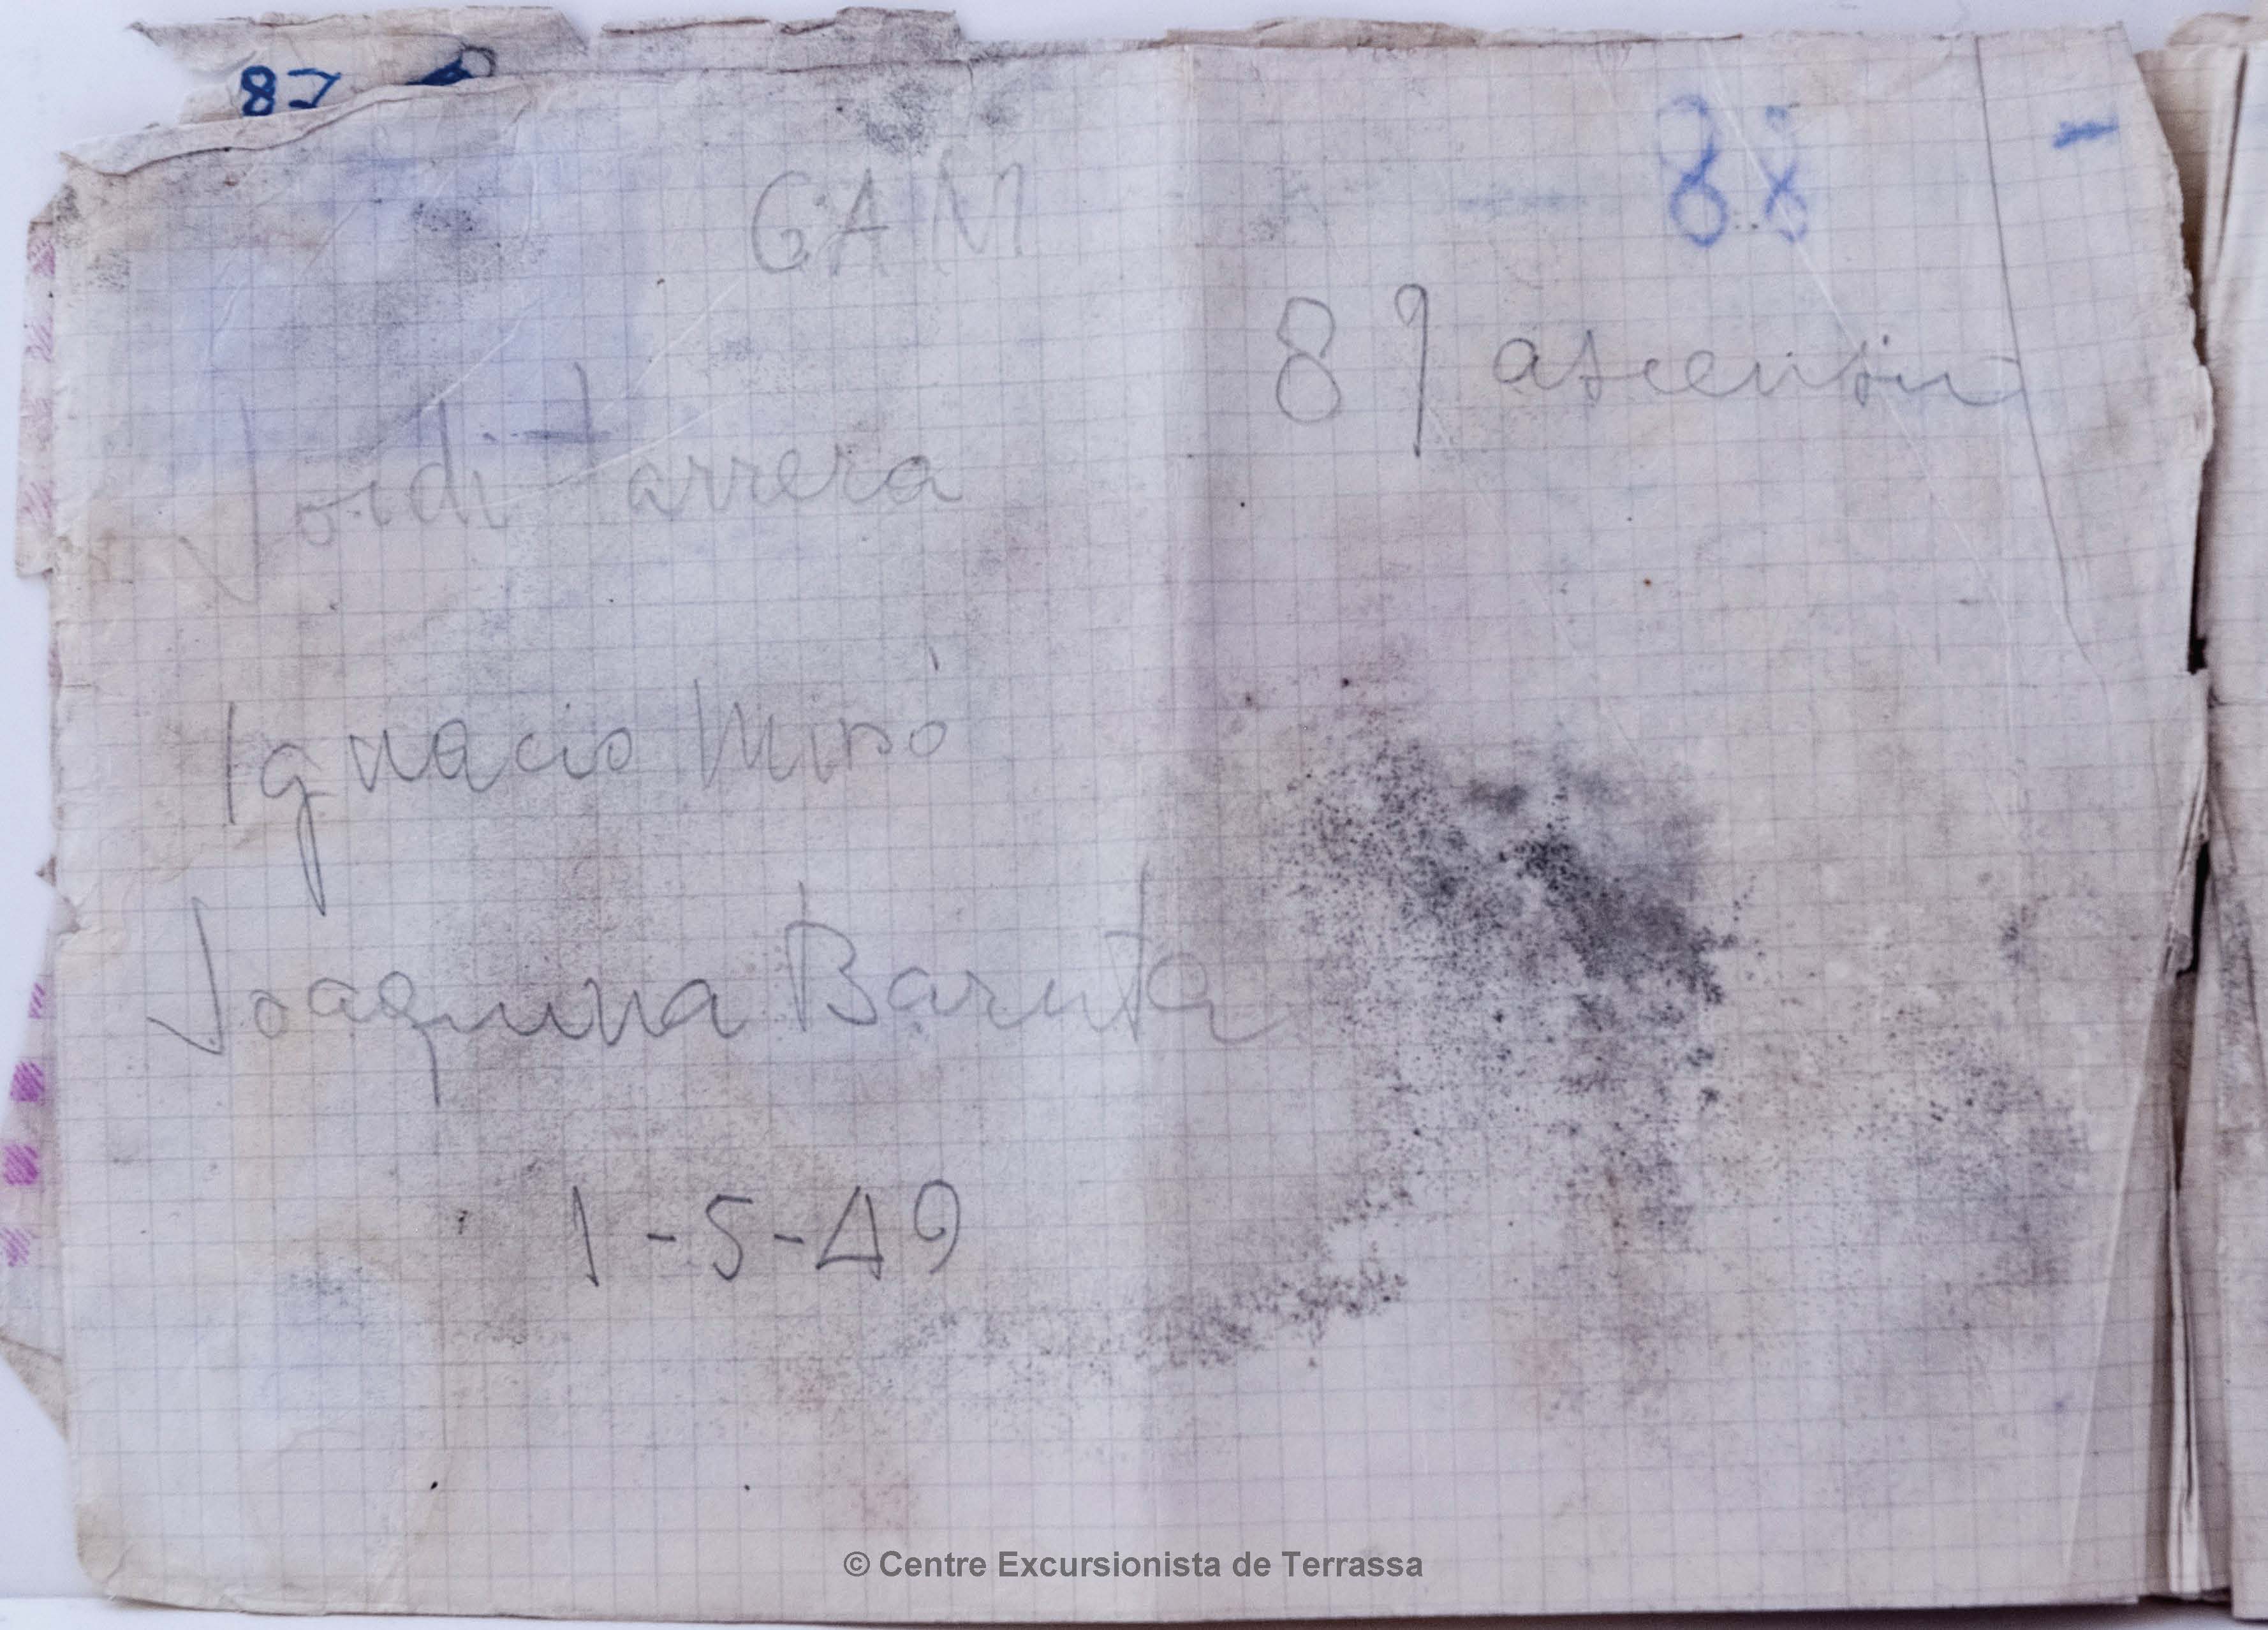 87
88
GAM
89 ascensió
Jordi Farrera
Ignacio Miró
Joaquina Baruta
1-5-49
© Centre Excursionista de Terrassa